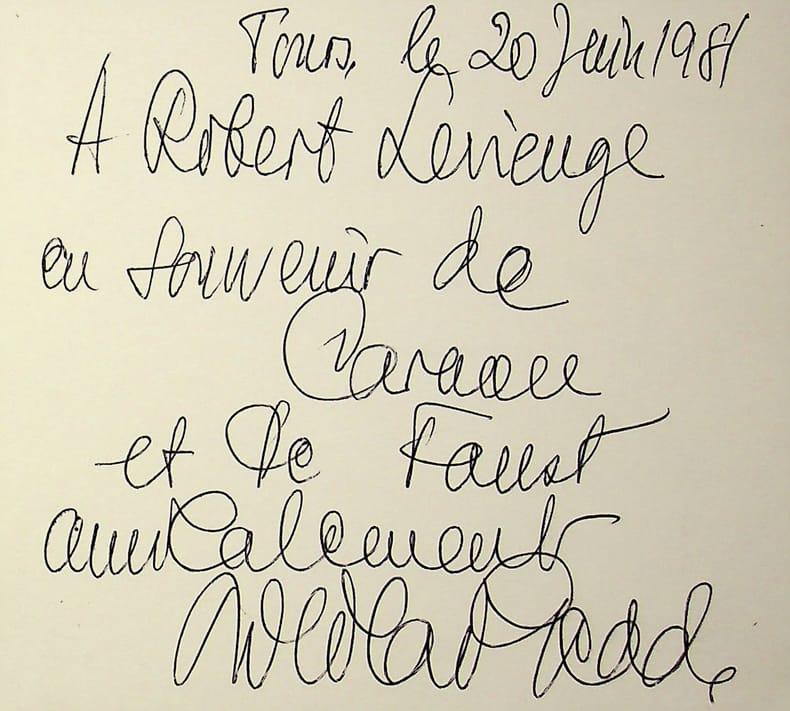 Tours, le 20 Juin 1981
A Robert Levieuge
en souvenir de
Carmen
et de Faust
amicalement
Nicolai Gedda